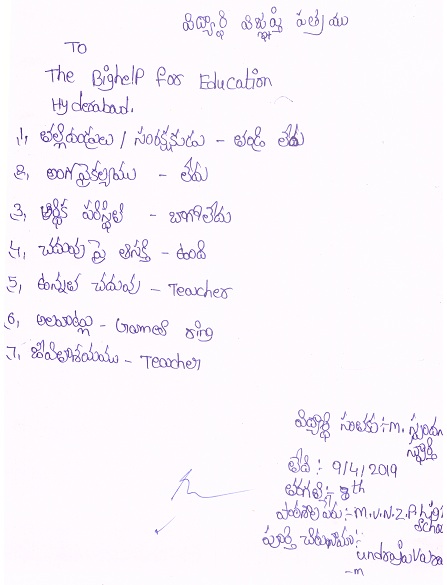 విద్యార్థి విజ్ఞప్తి పత్రము
TO
The Bighelp for Education
Hyderabad.
1, తల్లిదండ్రులు / సంరక్షకుడు - తండ్రి లేడు
2, అంగవైకల్యము - లేదు
3, ఆర్థిక పరిస్థితి - బాగాలేదు
4, చదువు పై ఆసక్తి - ఉంది
5, ఉన్నత చదువు - Teacher
6, అలవాట్లు - Games
7, జీవితాశయము - Teacher
విద్యార్థి సంతకం :- m.
తేది :- 9/4/2019
తరగతి :- 8th
పాఠశాల పేరు :- M.V.N.Z.P.H
పూర్తి చిరునామా :-
-m